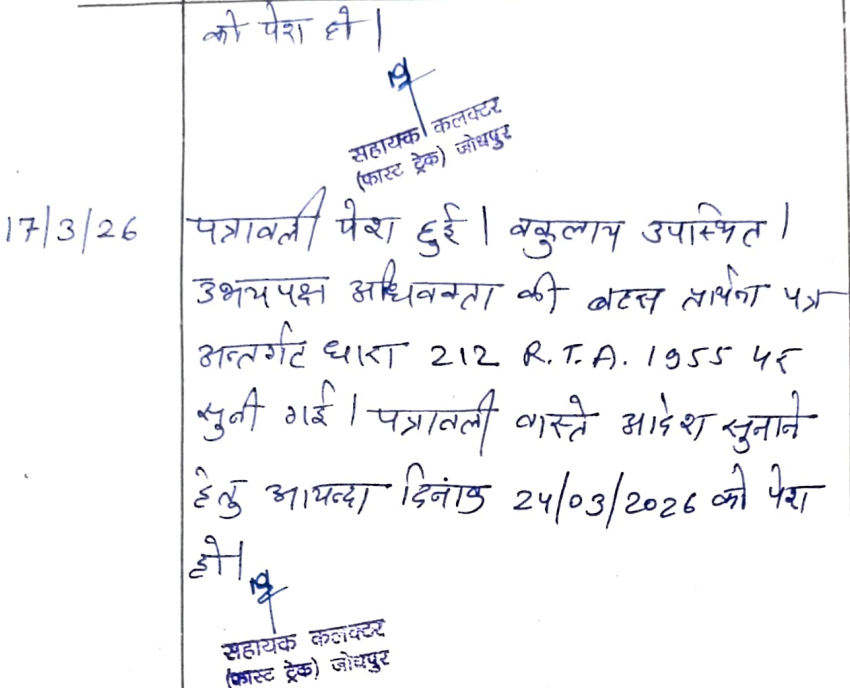 को पेश हो |
सहायक कलक्टर
(फास्ट ट्रेक) जोधपुर
17/3/26 पत्रावली पेश हुई | वकुलाय उपस्थित |
उभयपक्ष अधिवक्ता की बहस प्रार्थना पत्र
अन्तर्गत धारा 212 R.T.A. 1955 पर
सुनी गई | पत्रावली वास्ते आदेश सुनाने
हेतु आयन्दा दिनांक 24/03/2026 को पेश
हो |
सहायक कलक्टर
(फास्ट ट्रेक) जोधपुर